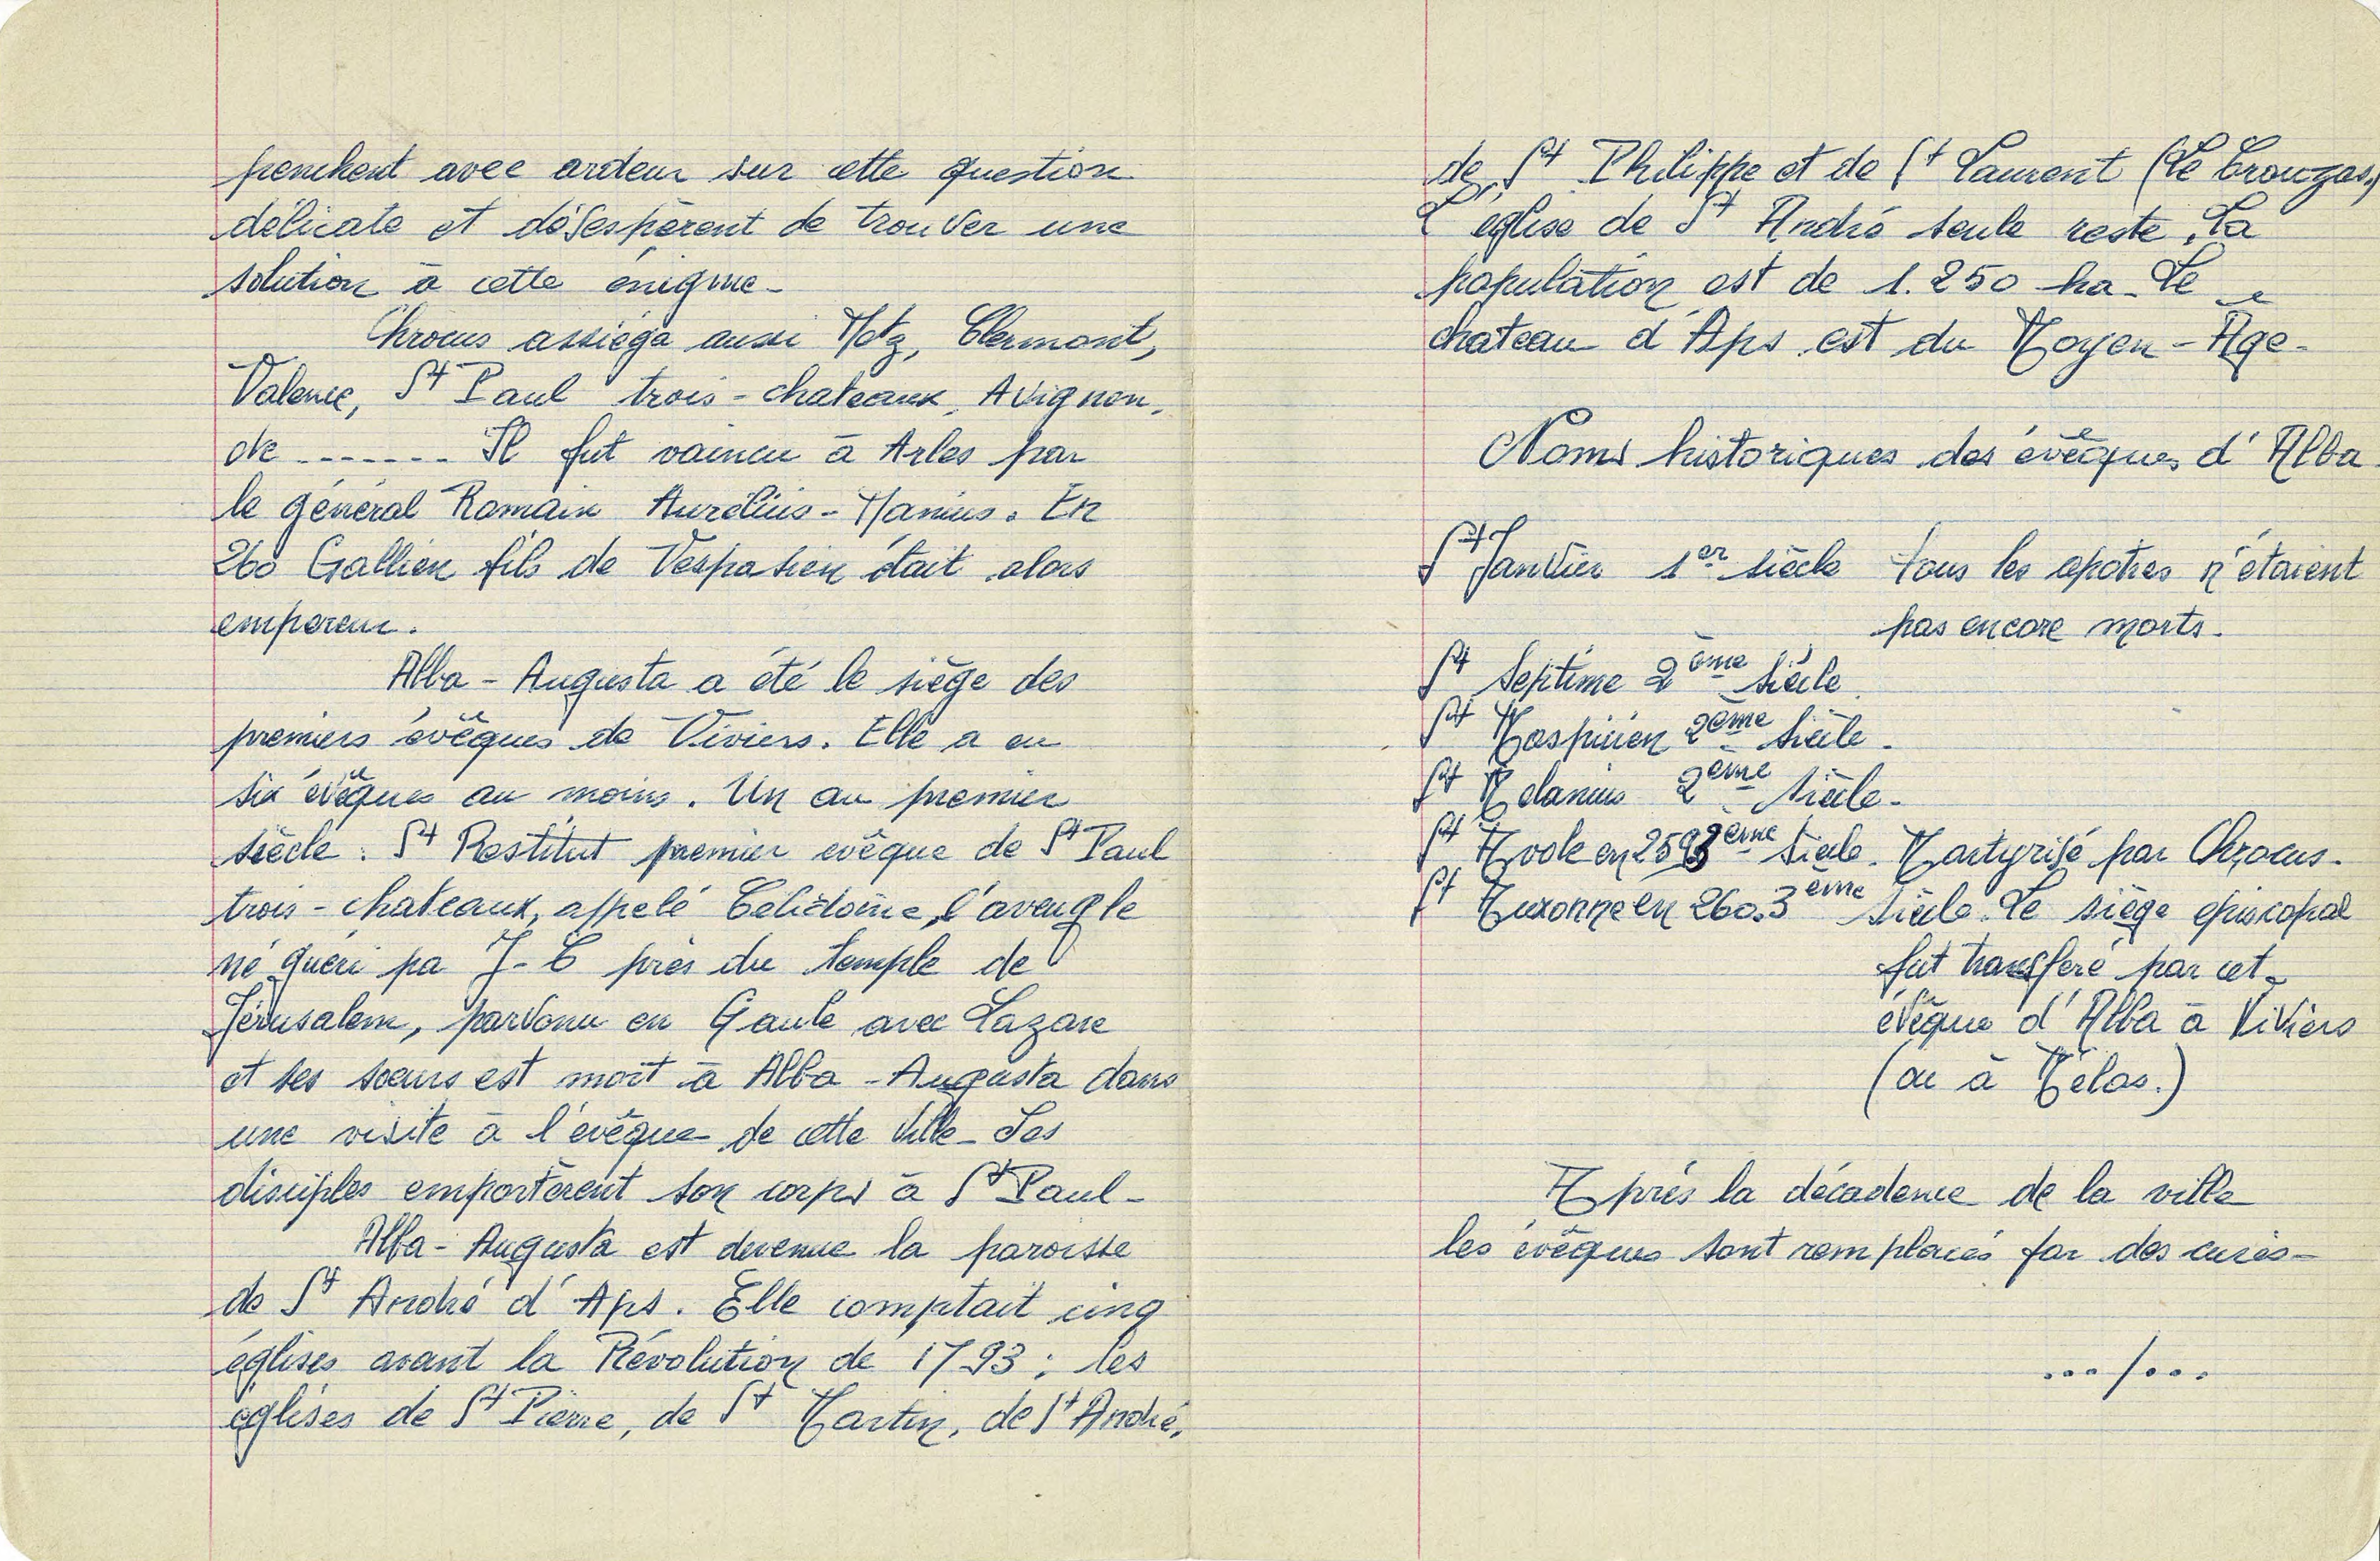 penchent avec ardeur sur cette question
délicate et désespèrent de trouver une
solution à cette énigme -
Chrocus assiéga aussi Metz, Clermont,
Valence, St Paul trois-chateaux, Avignon,
etc ....... Il fut vaincu à Arles par
le général Romain Aurélius-Manius. En
260 Gallien fils de Vespasien était alors
empereur.
Alba-Augusta a été le siège des
premiers évêques de Viviers. Elle a eu
six évêques au moins. Un au premier
siècle. St Restitut premier evêque de St Paul
trois-chateaux, appelé Célidoine, l'aveugle
né guéri pa J-C près du temple de
Jérusalem, parvenu en Gaule avec Lazare
et ses soeurs est mort à Alba-Augusta dans
une visite à l'evêque de cette ville - Ses
disciples emportèrent son corps à St Paul -
Alba-Augusta est devenue la paroisse
de St André d'Aps. Elle comptait cinq
églises avant la Révolution de 1793 : les
églises de St Pierre, de St Martin, de St André,
de St Philippe et de St Laurent (Le
L'église de St André seule reste. La
population est de 1.250 ha - Le
chateau d'Aps est du Moyen-Age -
Noms historiques des évêques d'Alba
St Janvier 1er siècle tous les apotres n'étaient
pas encore morts -
St Septime 2ème siècle
St Maspicien 2ème siècle -
St Melanius 2ème siècle -
St en 259 3ème siècle - Martyrisé par Chrocus -
St en 260. 3ème siècle. Le siège episcopal
fut transféré par cet
évêque d'Alba à Viviers
(ou à Mélas.)
Après la décadence de la ville
les évêques sont remplacés par des curés -
.../...